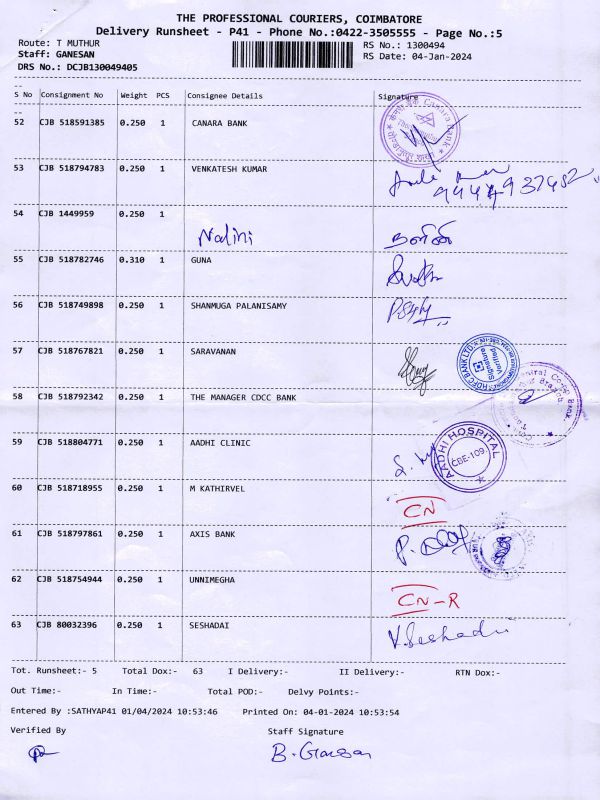 THE PROFESSIONAL COURIERS, COIMBATORE
Delivery Runsheet - P41 - Phone No.:0422-3505555 - Page No.:5
Route: T MUTHUR RS No.: 1300494
Staff: GANESAN RS Date: 04-Jan-2024
DRS No.: DCJB130049405
S No Consignment No Weight PCS Consignee Details Signature
52 CJB 518591385 0.250 1 CANARA BANK
Canara Bank
53 CJB 518794783 0.250 1 VENKATESH KUMAR
54 CJB 1449959 0.250 1
Nalini நளினி
55 CJB 518782746 0.310 1 GUNA
56 CJB 518749898 0.250 1 SHANMUGA PALANISAMY
57 CJB 518767821 0.250 1 SARAVANAN
HDFC BANK LTD.
Signature Verified
58 CJB 518792342 0.250 1 THE MANAGER CDCC BANK
59 CJB 518804771 0.250 1 AADHI CLINIC
AADHI HOSPITAL
CBE-109.
60 CJB 518718955 0.250 1 M KATHIRVEL
CN
61 CJB 518797861 0.250 1 AXIS BANK
62 CJB 518754944 0.250 1 UNNIMEGHA
CN-R
63 CJB 80032396 0.250 1 SESHADAI
V.Seshadri
Tot. Runsheet:- 5 Total Dox:- 63 I Delivery:- II Delivery:- RTN Dox:-
Out Time:- In Time:- Total POD:- Delvy Points:-
Entered By :SATHYAP41 01/04/2024 10:53:46 Printed On: 04-01-2024 10:53:54
Verified By Staff Signature
B. Ganesan